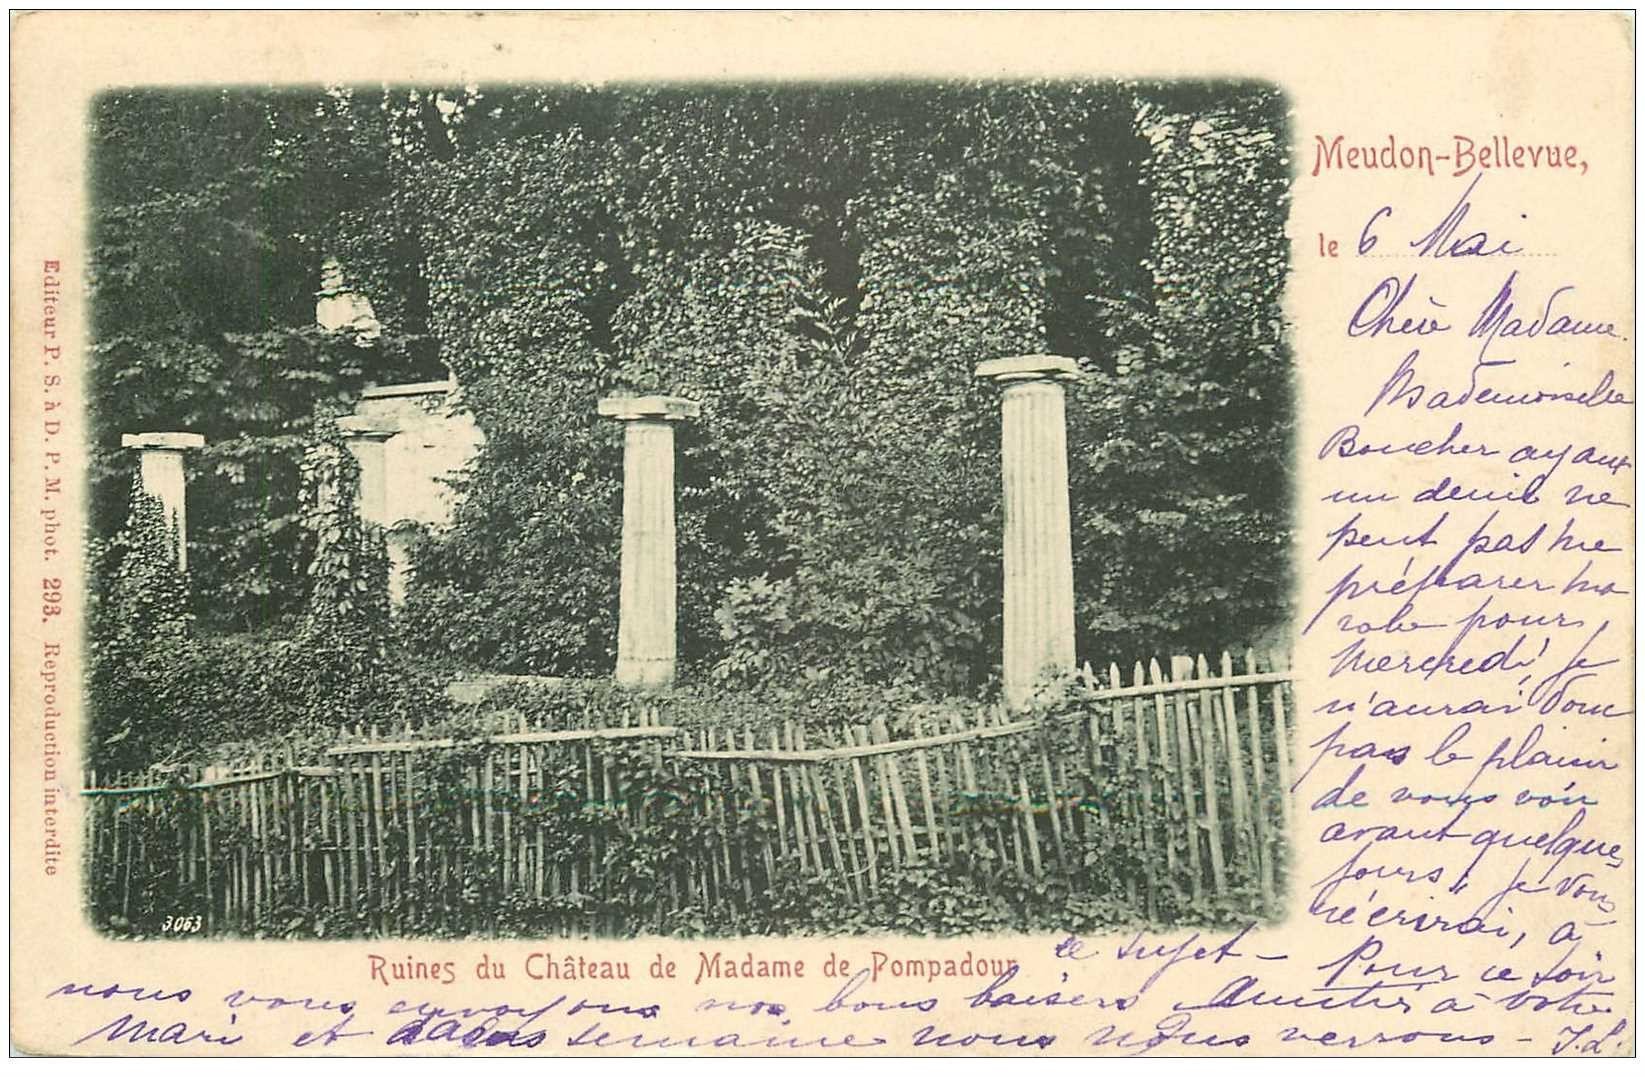 Meudon-Bellevue,
le 6 Mai
Chère Madame
Mademoiselle
Boucher ayant
un deuil ne
peut pas me
préparer ma
robe pour
Mercredi, je
n'aurai donc
pas le plaisir
de vous voir
avant quelques
jours, je vous
récrirai, à
ce sujet - Pour ce soir
nous vous envoyons nos bons baisers à votre
Mari et semaine nous nous verrons - J.L.
Ruines du Château de Madame de Pompadour
Editeur P. S. à D. P. M. phot. 293. Reproduction interdite
3063